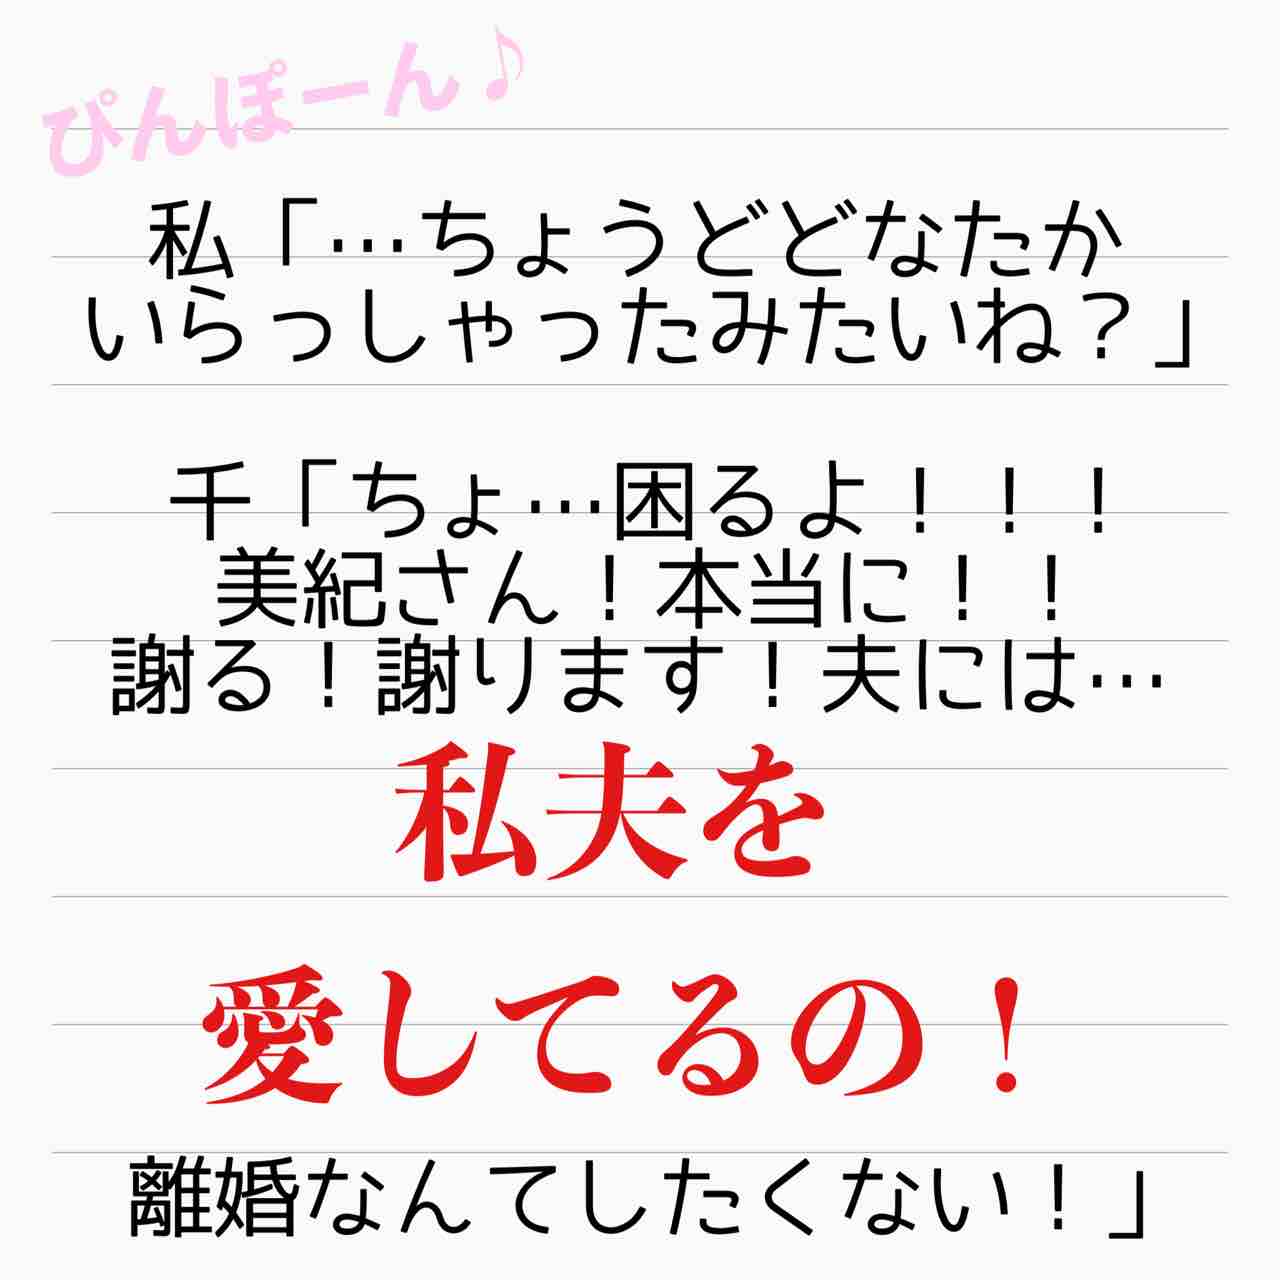 ぴんぽーん♪
私「…ちょうどどなたか
いらっしゃったみたいね？」
千「ちょ…困るよ！！！
美紀さん！本当に！！
謝る！謝ります！夫には…
私夫を
愛してるの！
離婚なんてしたくない！」